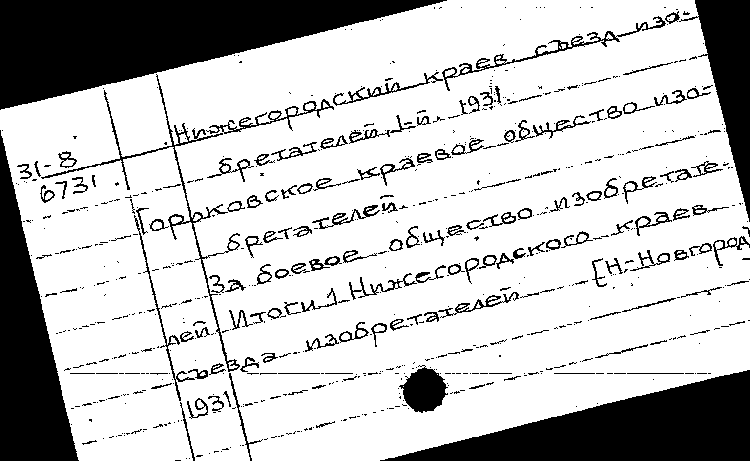 Нижегородский краев. съезд изо-
бретателей, 1-й. 1931.
31-8
6731
Горьковское краевое общество изо-
бретателей.
За боевое общество изобретате-
лей. Итоги 1 Нижегородского краев.
съезда изобретателей [Н.-Новгород]
1931